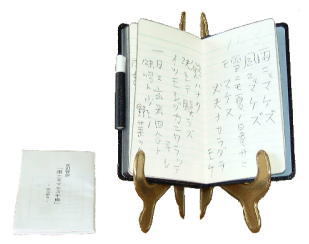 雨ニモマケズ
風ニモマケズ
雪ニモ夏ノ暑サニモ
マケヌ
丈夫ナカラダヲ
モチ
慾ハナク
決シテ瞋ラズ
イツモシヅカニワラッテ
ヰル
一日ニ玄米四合ト
味噌ト少シノ
野菜ヲ
「雨ニモマケズ手帳」